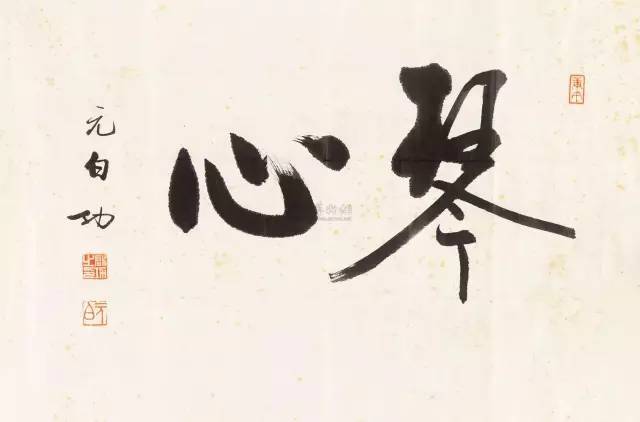 琴心
元白功